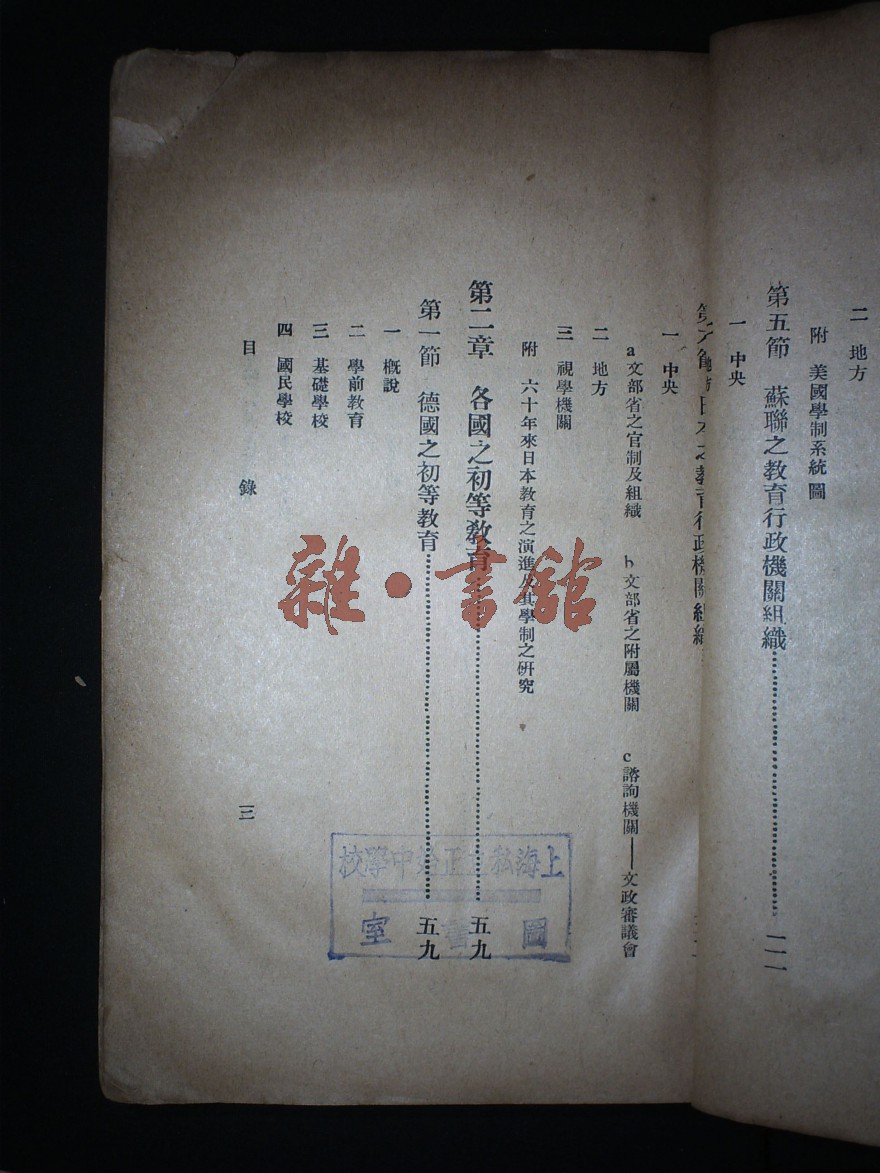 二 地方
附 美國學制系統圖
第五節 蘇聯之教育行政機關組織 二一
一 中央
日本之教育行政機關組織
一 中央
a 文部省之官制及組織 b 文部省之附屬機關 c 諮詢機關——文政審議會
二 地方
三 視學機關
附 六十年來日本教育之演進及其學制之硏究
第二章 各國之初等敎育 五九
第一節 德國之初等教育 五九
一 概說
二 學前教育
三 基礎學校
四 國民學校
目錄 三
雜·書館
上海私立正始中學校
圖書室